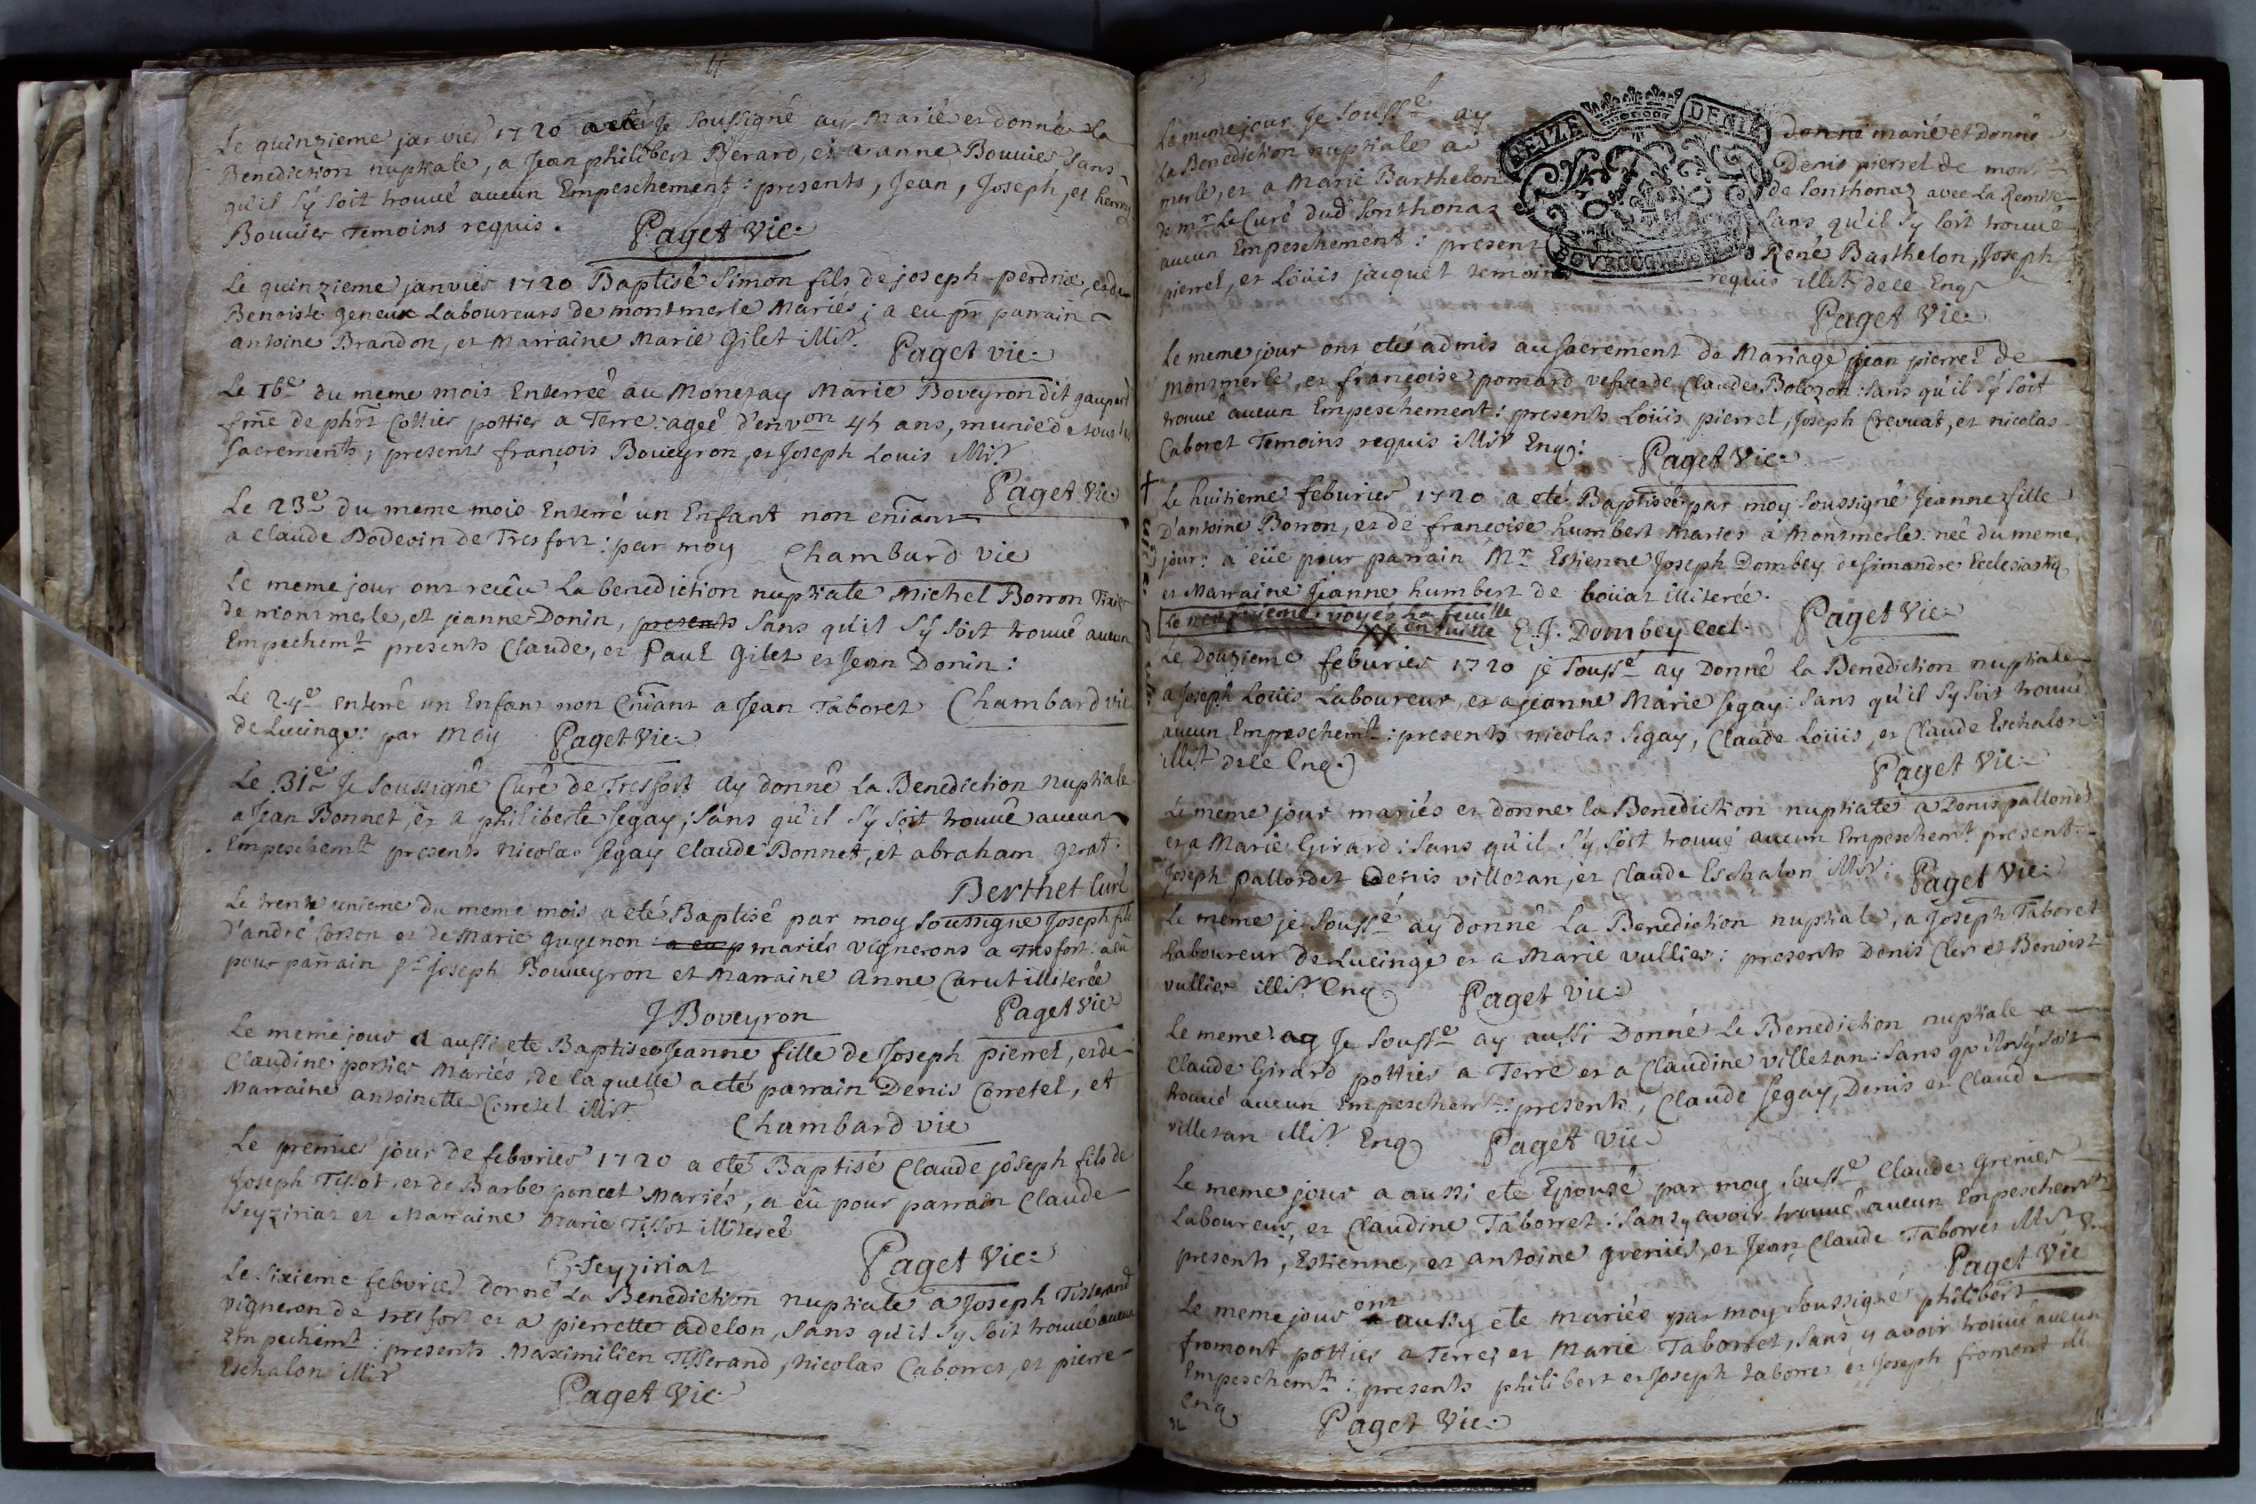 Le quinzieme janvier 1720 a eté Je soussigné ay Marié et donné La
Benediction nuptiale, a Jean philibert Berard, et a anne Bouvier sans
qu'il s'y soit trouvé aucun Empeschement: presents, Jean, Joseph, et
Bouvier temoins requis. Paget Vic.
Le quinzieme janvier 1720 Baptisé Simon fils de joseph perdrix, et de
Benoiste geneux Laboureurs de montmerle Mariés; a eu pr parrain
antoine Brandon, et Marraine Marie Gilet illit.
Paget vic.
Le 16e du meme mois Enterrée au Monetay Marie Boveyron dit
fme de phrt Collier pottier a Terre: agée d'environ 45 ans, munie de tous les
sacrements, presents françois Boveyron, et Joseph Louis illit.
Paget Vic.
Le 23e du meme mois Enterré un Enfant non
a Claude Bodevin de Tresfort: par moy Chambard vic
Le meme jour ont receu La benediction nuptiale Michel Borron
de montmerle, et jeanne Donin, presents sans qu'il s'y soit trouvé aucun
Empechemt presents Claude, et Paul Gilet et Jean Donin:
Chambard vic
Le 24e enterré un Enfant non a Jean Taboret
de Lucinge: par Moy Paget Vic.
Le 31e Je soussigné Curé de Tresfort ay donné La Benediction nuptiale
a Jean Bonnet, et a philiberte Segay; sans qu'il s'y soit trouvé aucun
Empeschemt presents nicolas Segay Claude Bonnet, et abraham gerat.
Berthet Curé
Le trente unieme du meme mois a eté Baptisé par moy soussigné Joseph fils
d'andré Corson et de Marie guyenon: a eu p mariés vignerons a Tresfort: a eu
pour parrain Sr Joseph Bouveyron et Marraine Anne Carut illiterée
J Boveyron Paget Vic
Le meme jour a aussi ete Baptisee Jeanne fille de Joseph pierrel, et de
Claudine portier Mariés, de laquelle a eté parrain Denis Corretel, et
Marraine antoinette Corretel illit.
Chambard vic
Le premier jour de febvrier 1720 a eté Baptisé Claude joseph fils de
Joseph Tissot, et de Barbe poncet Mariés, a eu pour parrain Claude
Seyziriat et Marraine Marie Tissot illiterée
C. Seyziriat Paget Vic.
Le sixieme febvrier donné La Benediction nuptiale a Joseph Tisserand
vigneron de tresfort et a pierrette adelon, sans qu'il s'y soit trouvé aucun
Empechemt: presents Maximilien Tisserand, Nicolas Caborret, et pierre
Eschalon illit
Paget Vic.
Le meme jour Je soussé ay donné marié et donné
La Benediction nuptiale a Denis pierrel de mont-
merle, et a Marie Barthelon de Sonthonaz avec La Remise
de mr Le Curé dud Sonthonaz sans qu'il s'y soit trouvé
aucun Empeschement: presents René Barthelon, Joseph
pierrel, et Loüis jacquet temoins requis illit. de ce Enq.
SEIZE DENIE
Paget Vic.
Le meme jour ont etés admis au sacrement de Mariage jean pierrel de
montmerle, et françoise pomard vefve de Claude Bolozon: sans qu'il s'y soit
trouvé aucun Empeschement: presents Loüis pierrel, Joseph Crevvat, et nicolas
Caboret Temoins requis illit Enq: Paget Vic.
Le huitieme feburier 1720 a eté Baptisée par moy soussigné Jeanne fille
D'antoine Borron, et de françoise humbert Mariés a Montmerle née du meme
jour: a eüe pour parrain Mr Estienne Joseph Dombey de Simandre Ecclesiastiq
et Marraine Jeanne humbert de boüat illiterée.
Le neufvieme voyés La feuille
en suitte E. J. Dombey Eccl. Paget Vic.
Le Douzieme feburier 1720 je soussé ay Donné la Benediction nuptiale
a Joseph Loüis Laboureur, et a jeanne Marie Segay: sans qu'il s'y soit trouvé
aucun Empeschemt: presents nicolas Segay, Claude Loüis, et Claude Eschalon
illit de ce Enq.
Paget Vic.
Le meme jour mariés et donné la Benediction nuptiale a Denis pallordet
et a Marie Girard: sans qu'il s'y soit trouvé aucun Empeschemt present
Joseph pallordet Denis villetan, et Claude Eschalon illit: Paget Vic.
Le meme je soussé ay donné La Benediction nuptiale, a Joseph Taboret
Laboureur de Lucinge et a Marie vullier: presents Denis Cler et Benoist
vullier illit Enq Paget Vic.
Le meme ay Je soussé ay aussi Donné Le Benediction nuptiale a
Claude Girard pottier a Terre et a Claudine villetan: sans qu'il s'y soit
trouvé aucun Empeschemt: presents, Claude Segay, Denis et Claude
villetan illit Enq Paget Vic.
Le meme jour a aussi ete Epousé par moy soussé Claude Grenier
Laboureur, et Claudine Taborret: sans y avoir trouvé aucun Empeschemt
presents, Estienne, et antoine grenier, et Jean Claude Taborret illit
Paget Vic
Le meme jour ont aussy ete mariés par moy soussigné philibert
fromont pottier a Terre, et Marie Taborret, sans y avoir trouvé aucun
Empeschemt: presents philibert et Joseph taborret et Joseph fromont ill
Enq
Paget Vic.